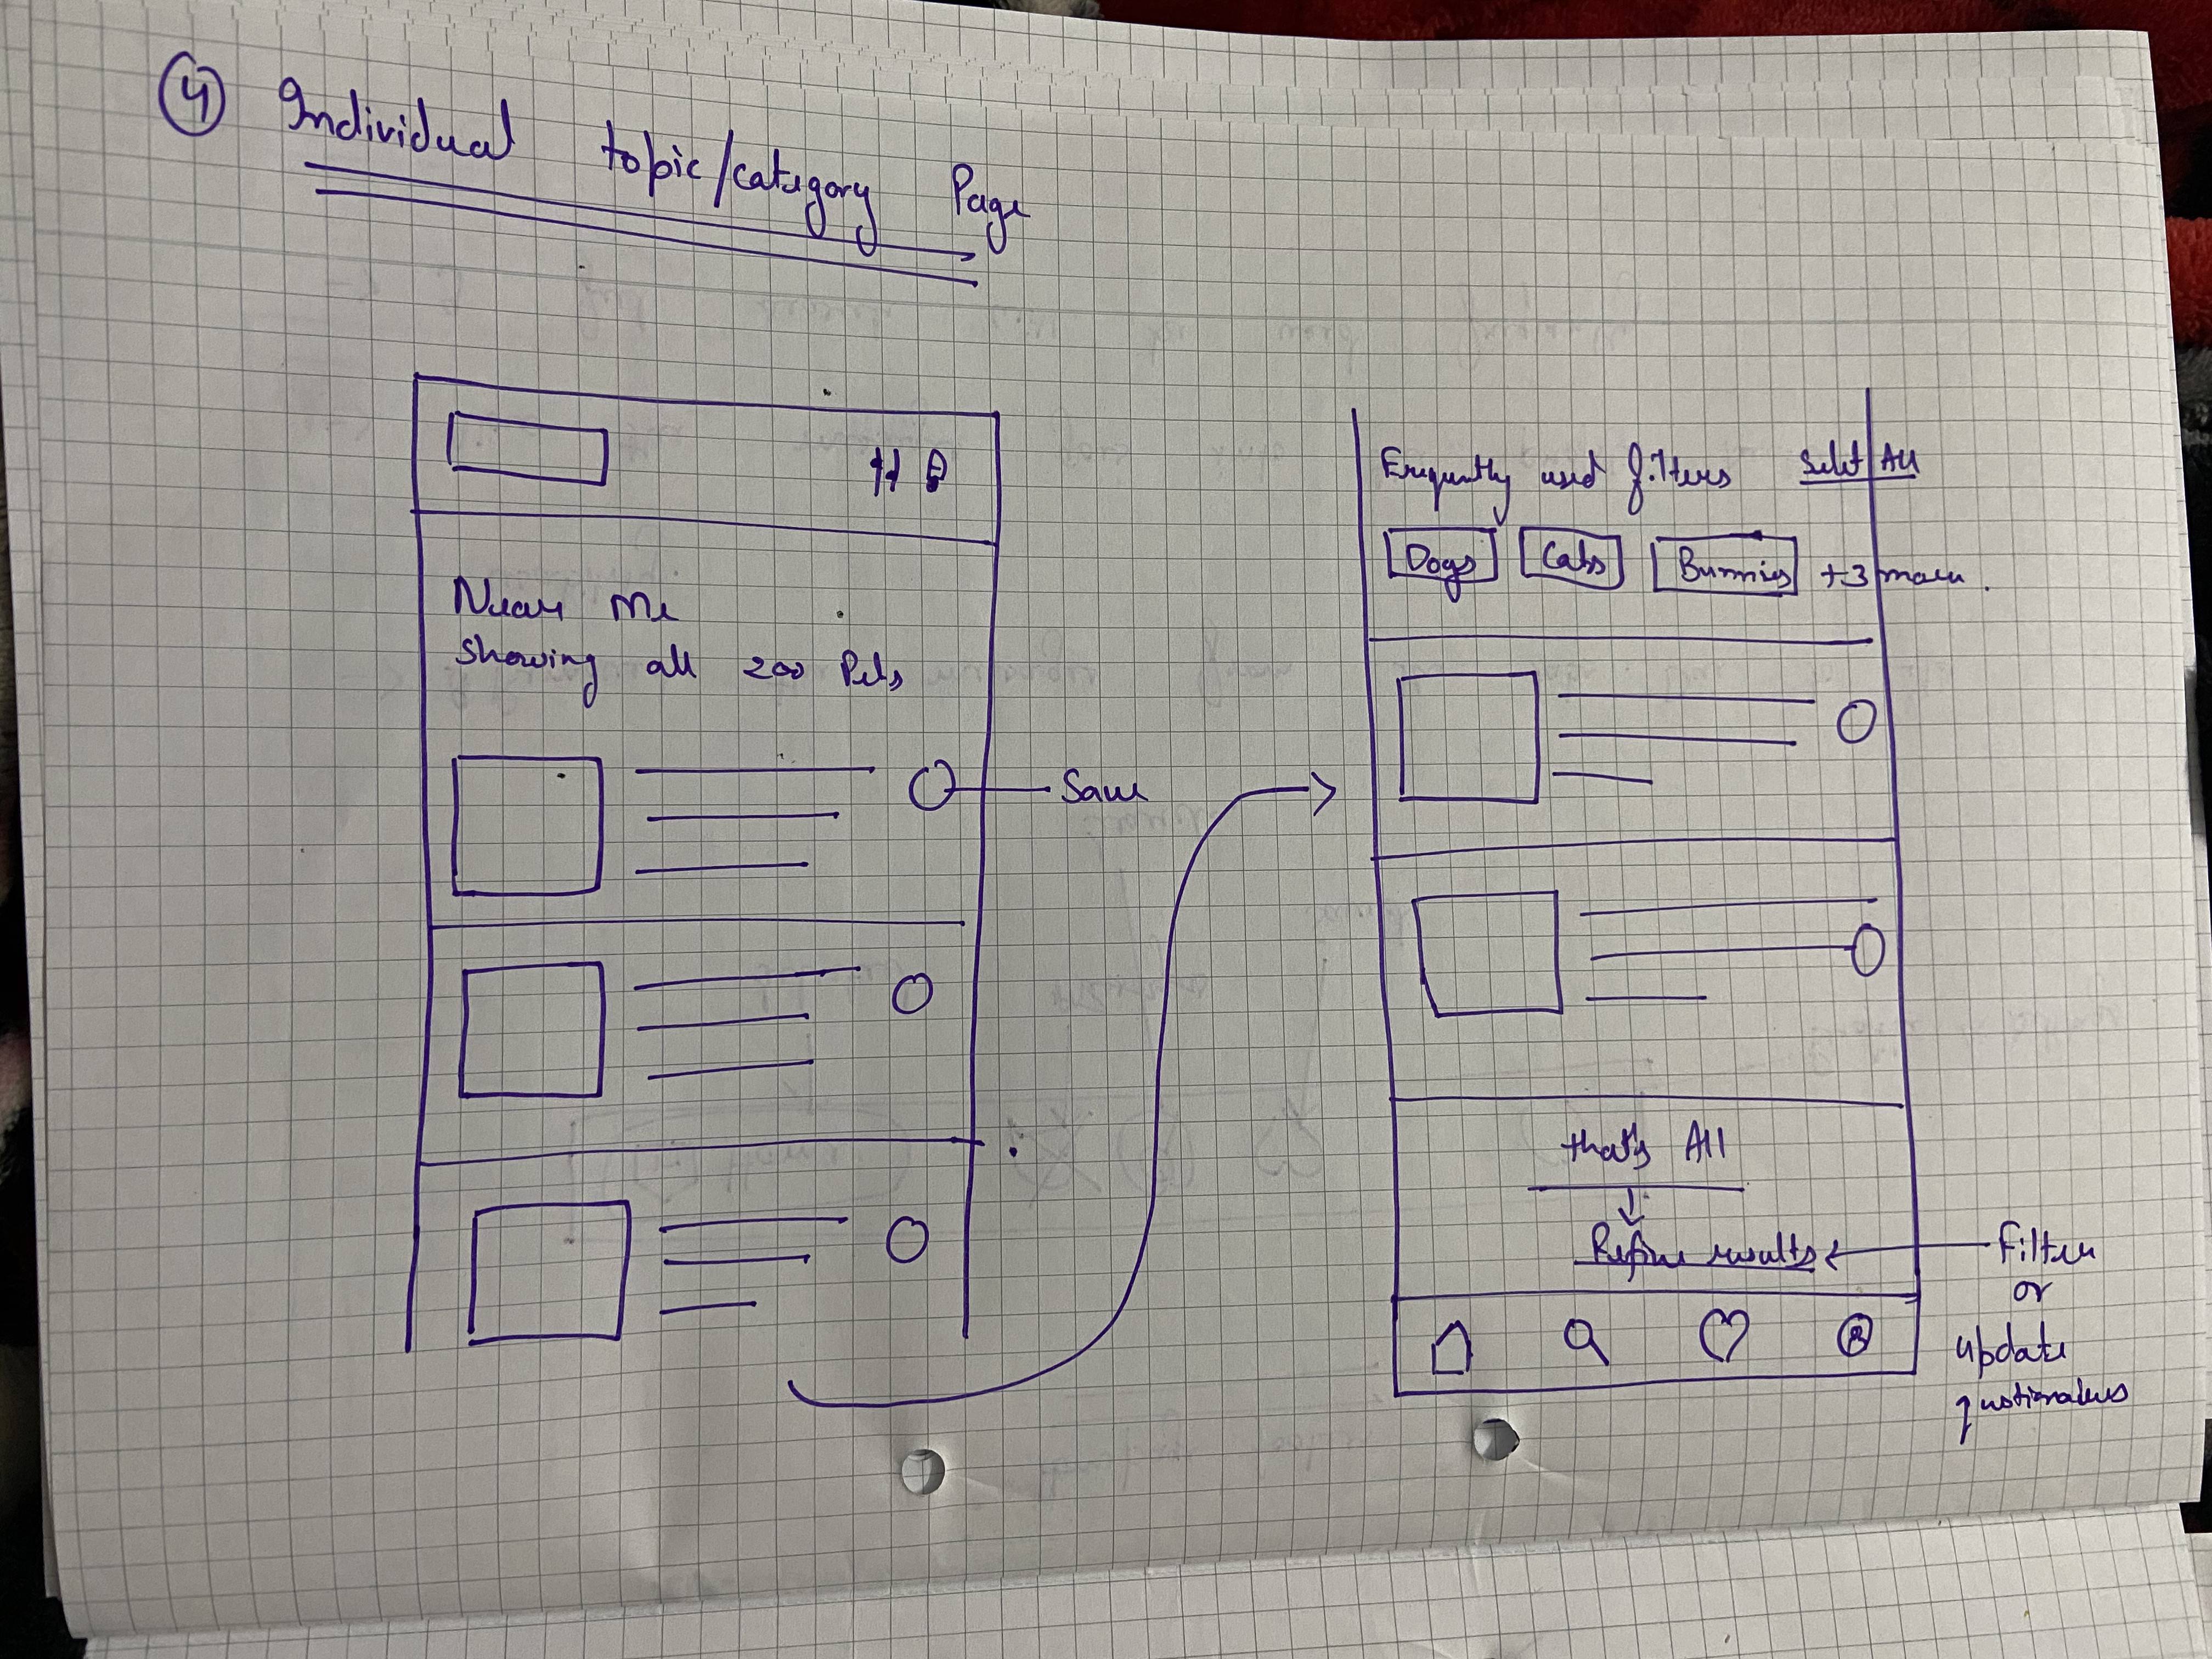 4 Individual topic/category Page
Near Me
Showing all 200 Pets
Save
Frequently used filters Select All
Dogs Cats Bunnies +3 more.
that's All
Refine results
Filter
or
update